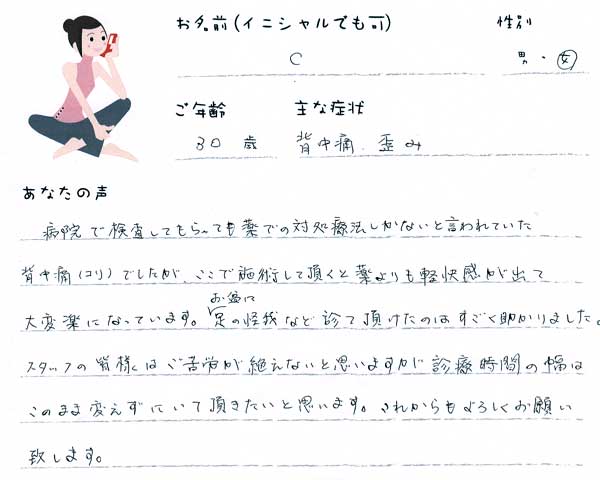 お名前(イニシャルでも可) 性別
C 男・女
ご年齢 主な症状
30 歳 背中痛、歪み
あなたの声
病院で検査してもらっても薬での対処療法しかないと言われていた
背中痛(コリ)でしたが、ここで施術して頂くと薬よりも軽快感が出て
お盆に
大変楽になっています。足の怪我など診て頂けたのはすごく助かりました。
スタッフの皆様はご苦労が絶えないと思いますが診療時間の幅は
このまま変えずにいて頂きたいと思います。これからもよろしくお願い
致します。